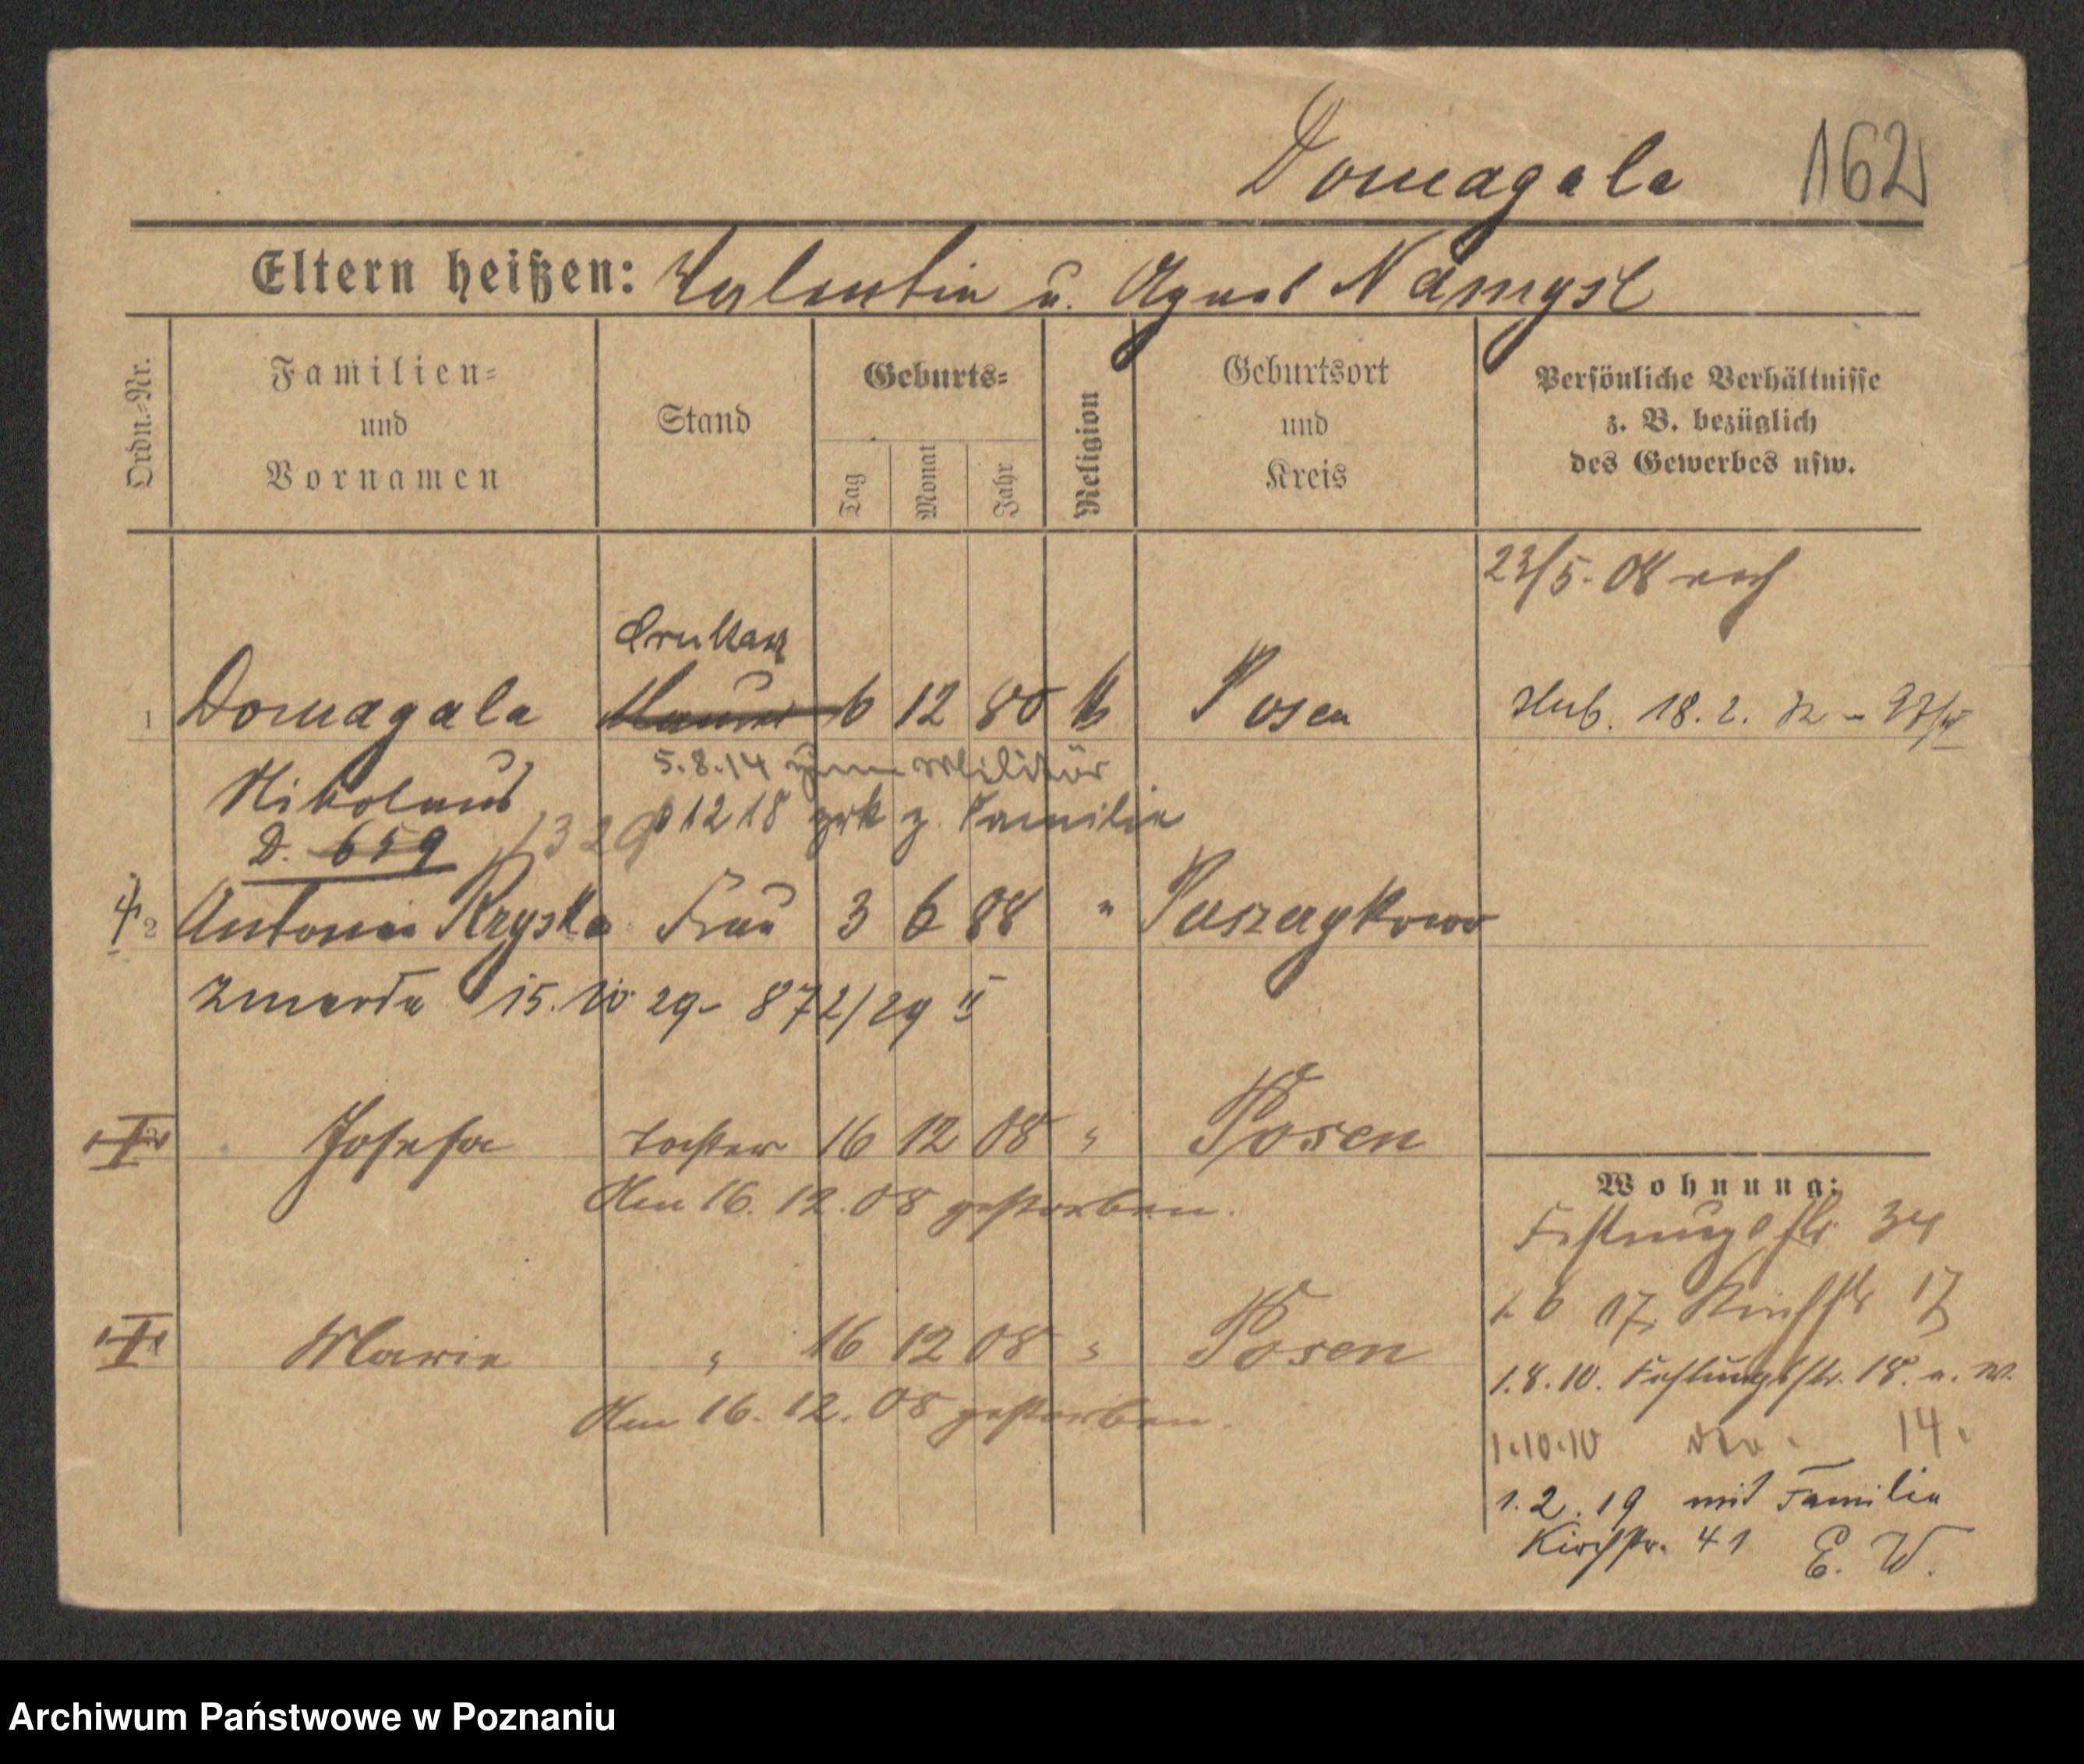 Domagala 162
Eltern heißen: Valentin u. Agnes Namysl
Ordn.-Nr.
Familien-
und
Vornamen
Stand
Geburts-
Tag
Monat
Jahr
Religion
Geburtsort
und
Kreis
Persönliche Verhältnisse
z. B. bezüglich
des Gewerbes usw.
23/5. 08
1 Domagala 6 12 80 k Posen
18. 2.
5.8.14 zum Militär
Nikolaus
12 18 zrk z. Familie
D. 659 1329
2 Antonie Kryska Frau 3 6 88 " Paszczykowo
Zmarła 15. 10 29 - 872/29 II
Josefa Tochter 16 12 08 " Posen
Am 16. 12. 08 gestorben.
Marie " 16 12 08 " Posen
Am 16. 12. 08 gestorben.
Wohnung:
Festungsstr 34
1.8.10. Festungsstr. 18. a. W.
1.10.10 14.
1.2.19 mit Familie
Kirchstr. 41 E. W.
Archiwum Państwowe w Poznaniu